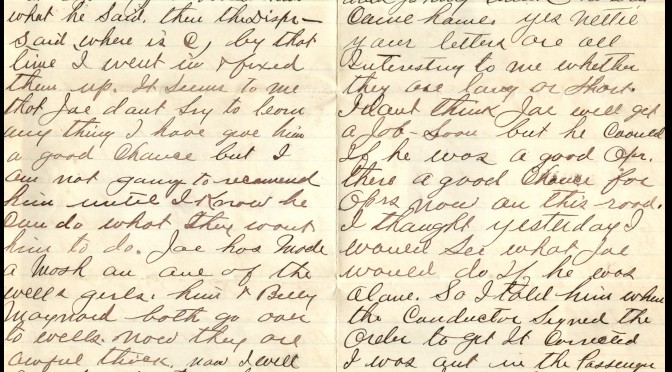 what he said. then the Dispr-
said where is C, by that
time I went in & fixed
them up. It seems to me
that Joe dont try to learn
any thing I have give him
a good chance but I
am not going to recomend
him until I Know he
can do what they want
him to do. Joe has made
a mash on one of the
wells girls. him & Billy
Maynard both go over
to wells. now they are
awful thick. now I will
came home. yes Nellie
your letters are all
Interesting to me whether
they are long or short.
I dont think Joe will get
a Job - soon but he Coould
If he was a good Opr.
there a good Chance for
Oprs now on this road.
I thought yesterday I
would see what Joe
would do If he was
alone. So I told him when
the Conductor Signed the
Order to get It Corrected
I was out in the Passenger